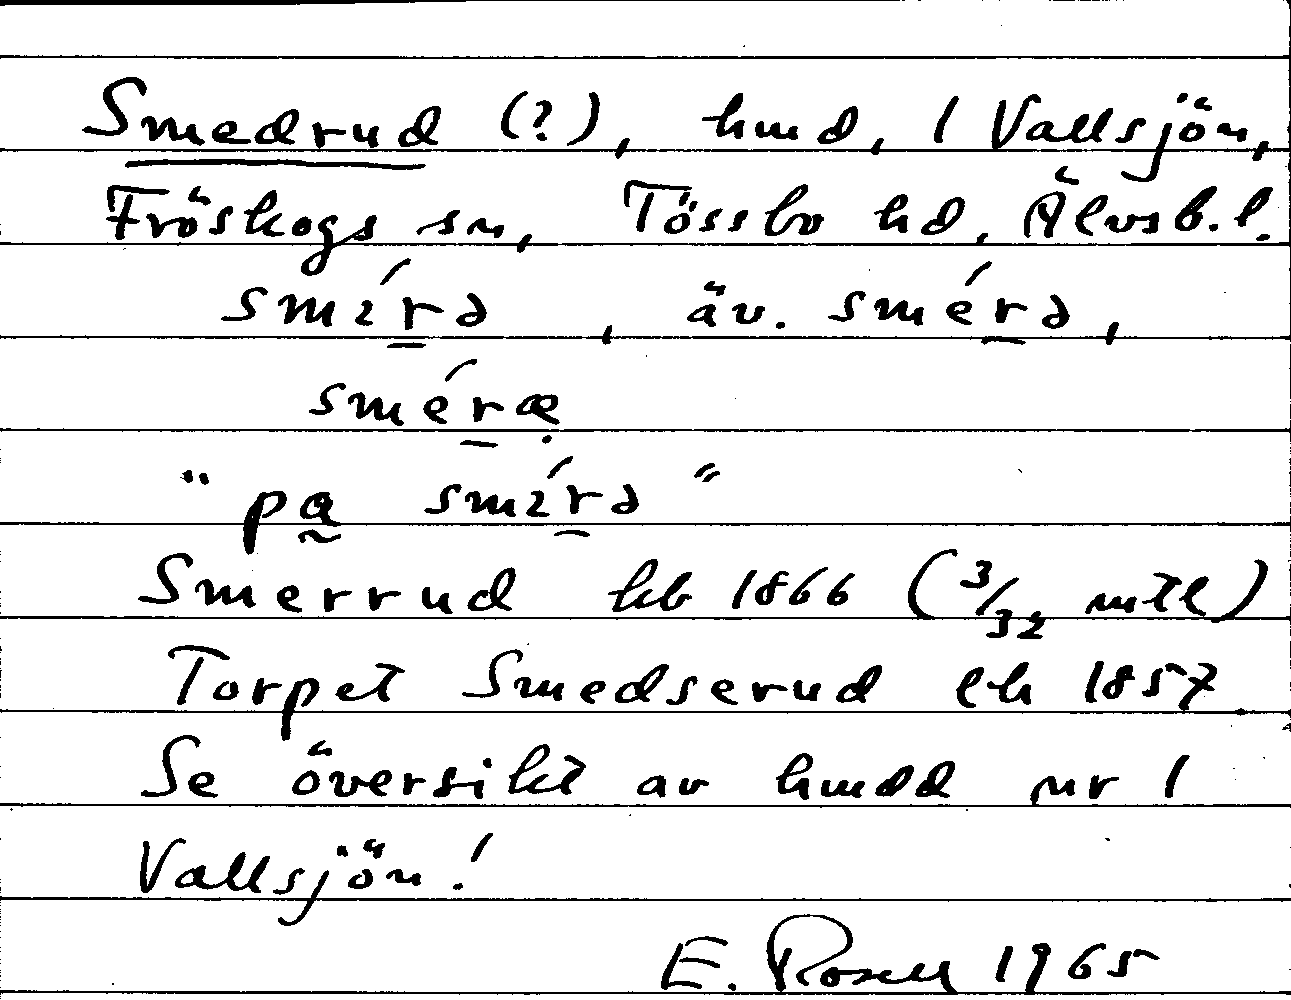 Smedrud (?), hmd, 1 Vallsjön,
Fröskogs sn, Tössbo hd, Älvsb. l.
smír̲ə, äv. smér̲ə,
smér̲æ̣
"pḁ smír̲ə"
Smerrud kb 1866 (3/32 mtl)
Torpet Smedserud lh 1857.
Se översikt av hmdd nr 1
Vallsjön!
E. Rosell 1965